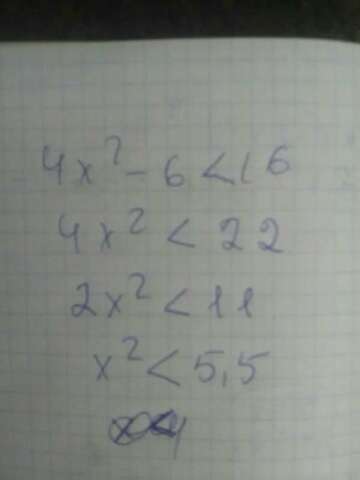 4x² - 6 < 16
4x² < 22
2x² < 11
x² < 5,5